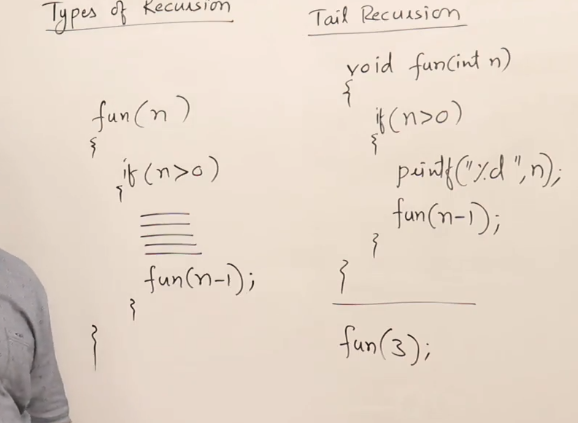 Types of Recursion
fun(n)
{
if(n>0)
{
fun(n-1);
}
}
Tail Recursion
void fun(int n)
{
if(n>0)
{
printf("%d",n);
fun(n-1);
}
}
fun(3);